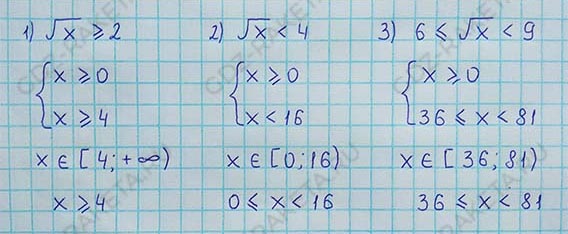 1) √x ≥ 2
{ x ≥ 0
x ≥ 4
x ∈ [4; +∞)
x ≥ 4
2) √x < 4
{ x ≥ 0
x < 16
x ∈ [0; 16)
0 ≤ x < 16
3) 6 ≤ √x < 9
{ x ≥ 0
36 ≤ x < 81
x ∈ [36; 81)
36 ≤ x < 81